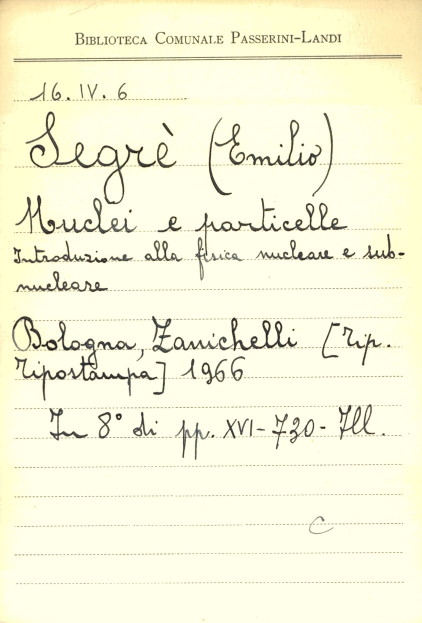 BIBLIOTECA COMUNALE PASSERINI-LANDI
16. IV. 6
Segrè (Emilio)
Nuclei e particelle
Introduzione alla fisica nucleare e sub-
nucleare
Bologna, Zanichelli [Tip.
Tipostampa] 1966
In 8° di pp. XVI-730- Ill.
C